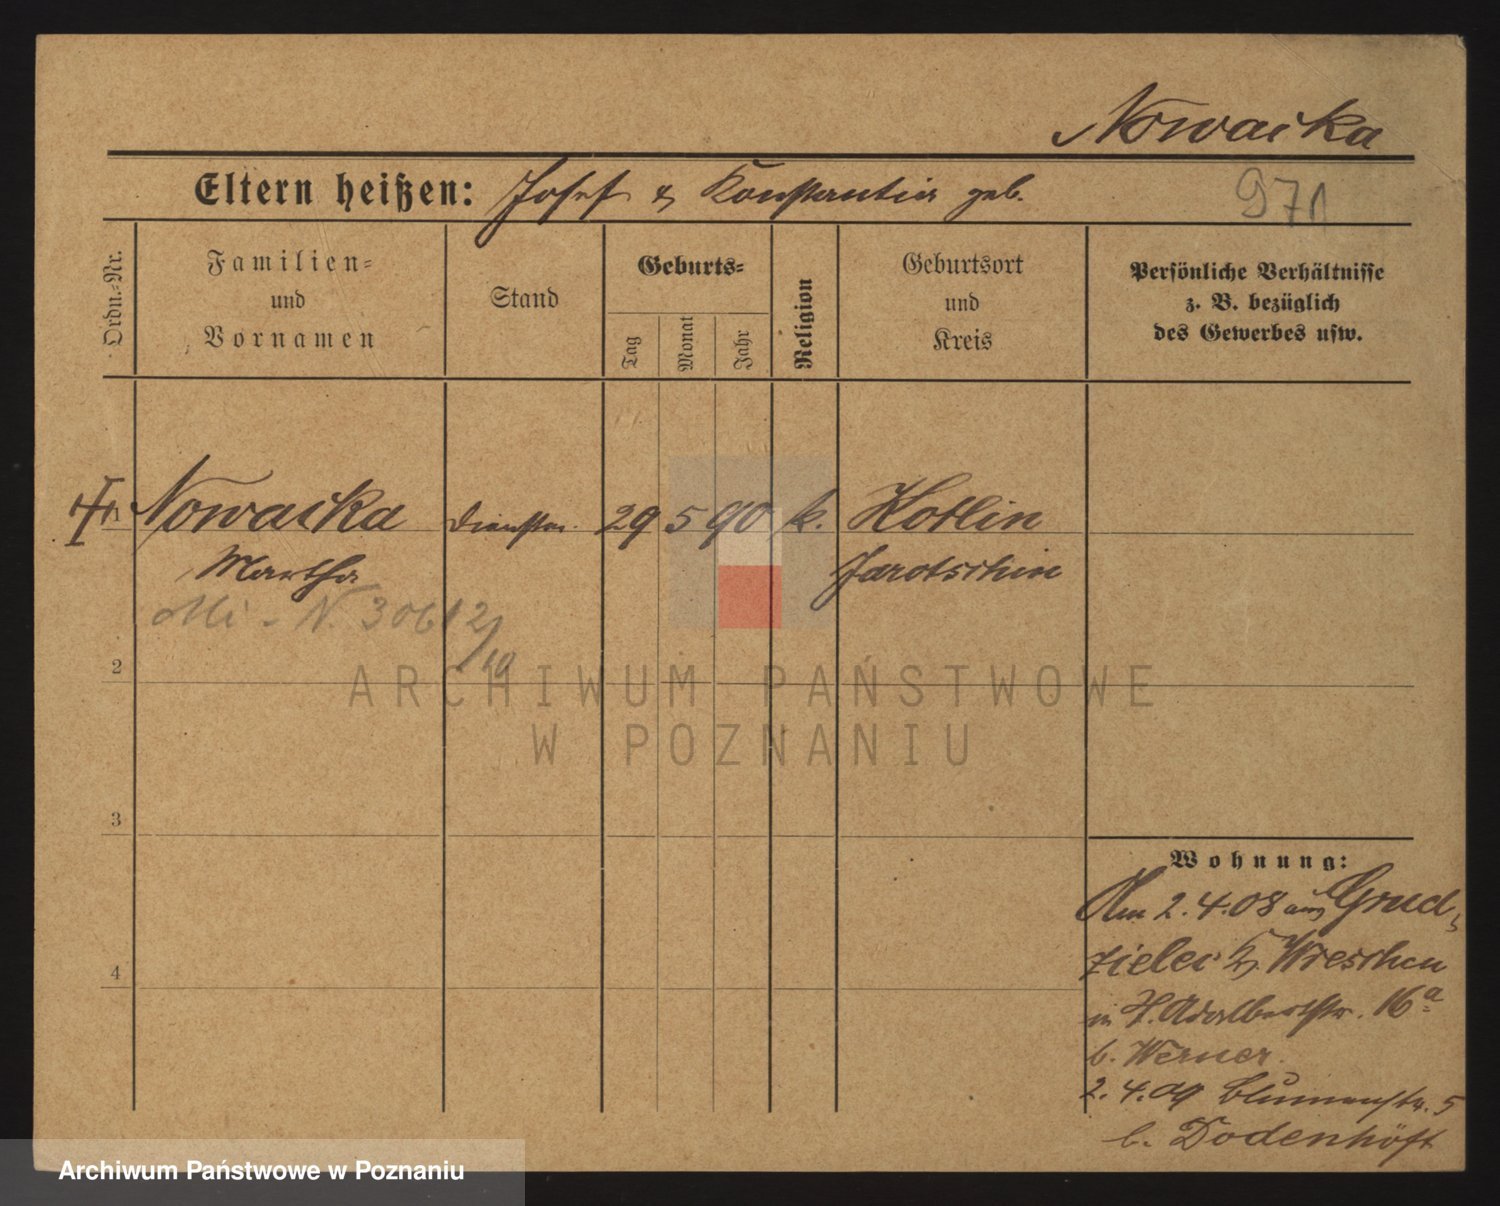 Nowacka
Eltern heißen: Josef & Konstantia geb.
971
Ordn.-Nr.
Familien-
und
Vornamen
Stand
Geburts-
Tag
Monat
Jahr
Religion
Geburtsort
und
Kreis
Persönliche Verhältnisse
z. B. bezüglich
des Gewerbes usw.
1 Nowacka Dienstm. 29 5 90 k. Kotlin
Martha Jarotschin
Mi - N. 30612/10
2
3
4
Wohnung:
Am 2.4.08 aus Grud-
zielec Kr. Wreschen
in St. Adalbertstr. 16a
b. Werner.
2.4.09 Blumenstr. 5
b. Dodenhöft
ARCHIWUM PAŃSTWOWE
W POZNANIU
Archiwum Państwowe w Poznaniu